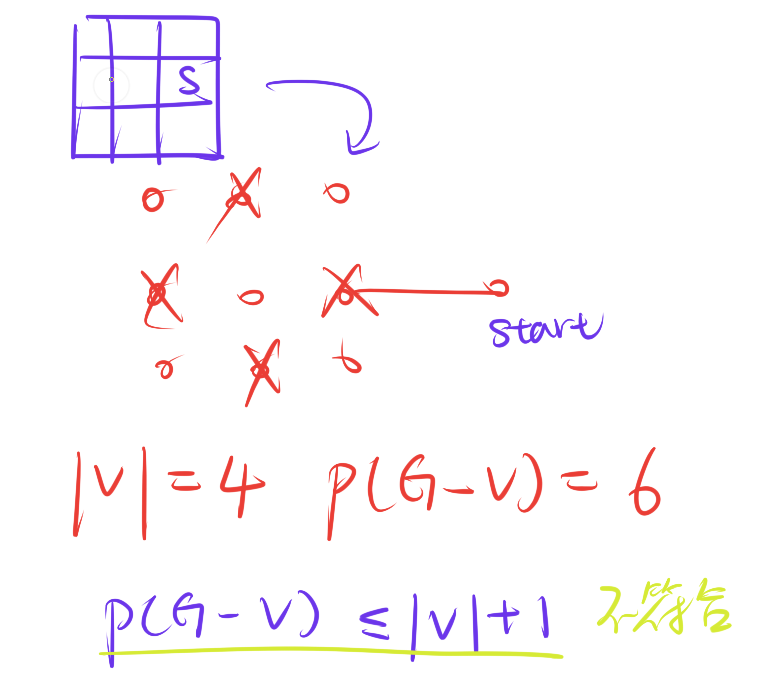 S
start
|V| = 4 p(G-V) = 6
p(G-V) ≤ |V|+1 不符合